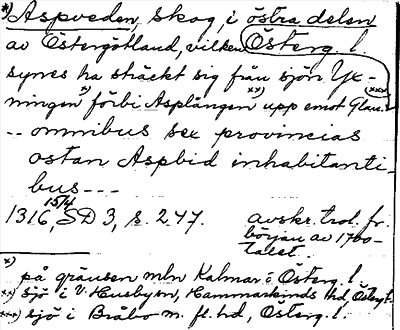 *) Aspveden, skog, i östra delen
av Östergötland, vilken Österg. l.
synes ha sträckt sig från sjön Yx-
ningen x) förbi Asplången xx) upp emot Glan. xxx)
-- omnibus sex provincias
ostan Aspvid inhabitanti-
bus---
1316, 15/4 SD 3, s. 247. avskr. trol. fr.
början av 1700-
talet.
x) på gränsen mln Kalmar o. Österg. l.
xx) sjö i V. Husby sn, Hammarkinds hd, Östergt.
xxx) sjö i Bråbo m. fl. hd, Österg. l.